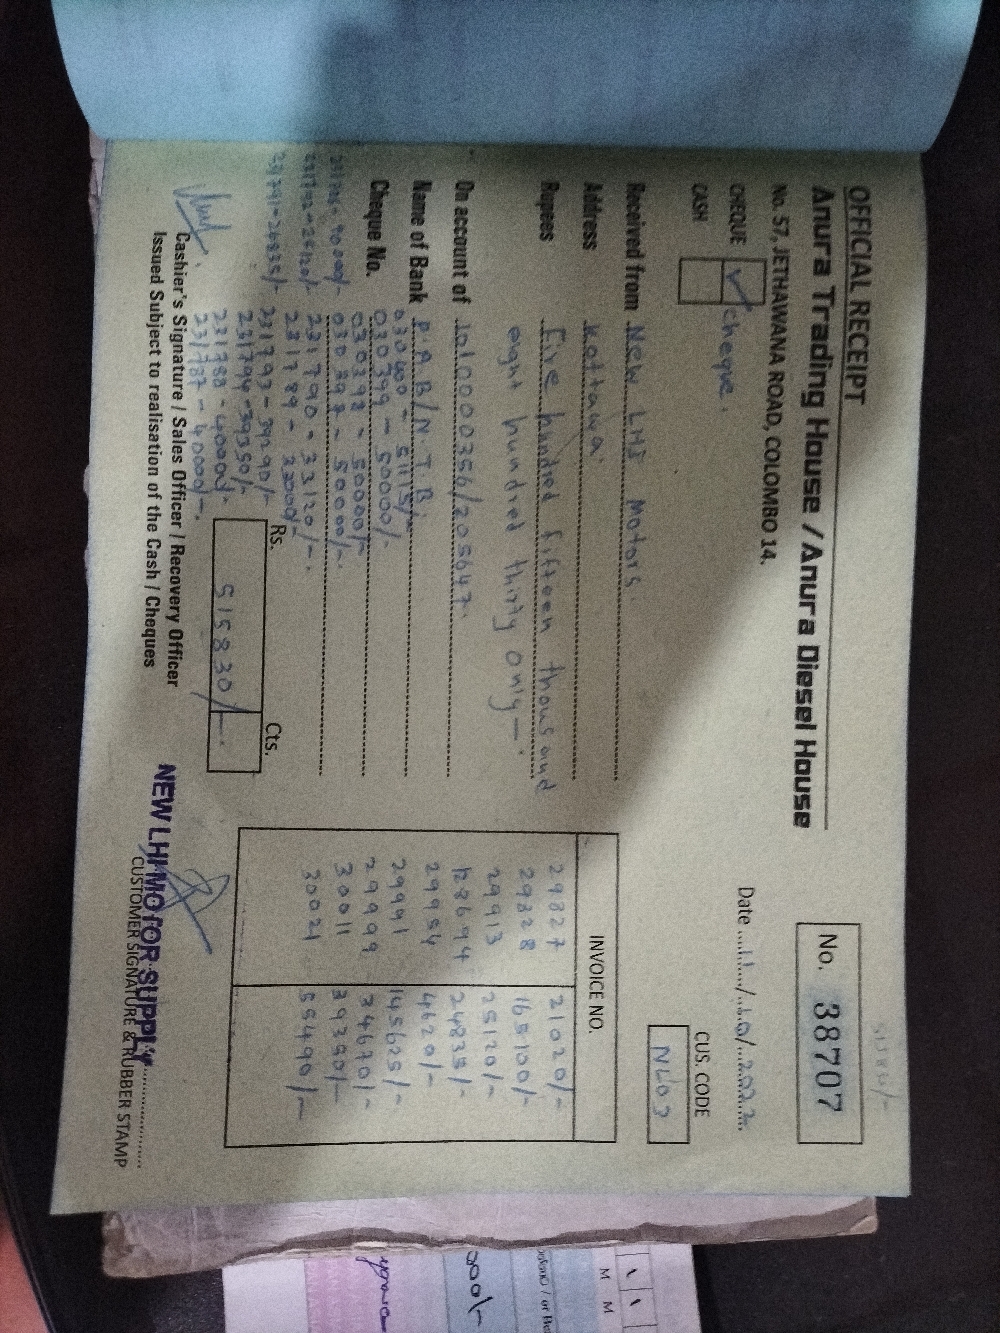 OFFICIAL RECEIPT
Anura Trading House / Anura Diesel House
No. 57, JETHAWANA ROAD, COLOMBO 14.
No. 38707
Date 11/10/2022
CHEQUE ✓ cheque.
CASH
CUS. CODE
NL03
Received from New LHI Motors.
Address Kottawa
Rupees Five hundred fifteen thousand
eight hundred thirty only
On account of 1010000356/205647.
Name of Bank P.A.B/N.T.B.
Cheque No.
030400 - 51115/-
030399 - 50000/-
030398 - 50000/-
030397 - 50000/-
231790 - 33120/-
231789 - 22000/-
231793 - 39290/-
231794 - 39350/-
231788 - 40000/-
231787 - 40000/-
231792 - 25120/-
231791 - 24835/-
INVOICE NO.
29827 21020/-
29828 165100/-
29913 25120/-
128694 24835/-
29954 4620/-
29991 145625/-
29999 34670/-
30011 39350/-
30021 55490/-
Rs. Cts.
515830/-
Cashier's Signature / Sales Officer / Recovery Officer
Issued Subject to realisation of the Cash / Cheques
NEW LHI MOTOR SUPPLY
CUSTOMER SIGNATURE & RUBBER STAMP